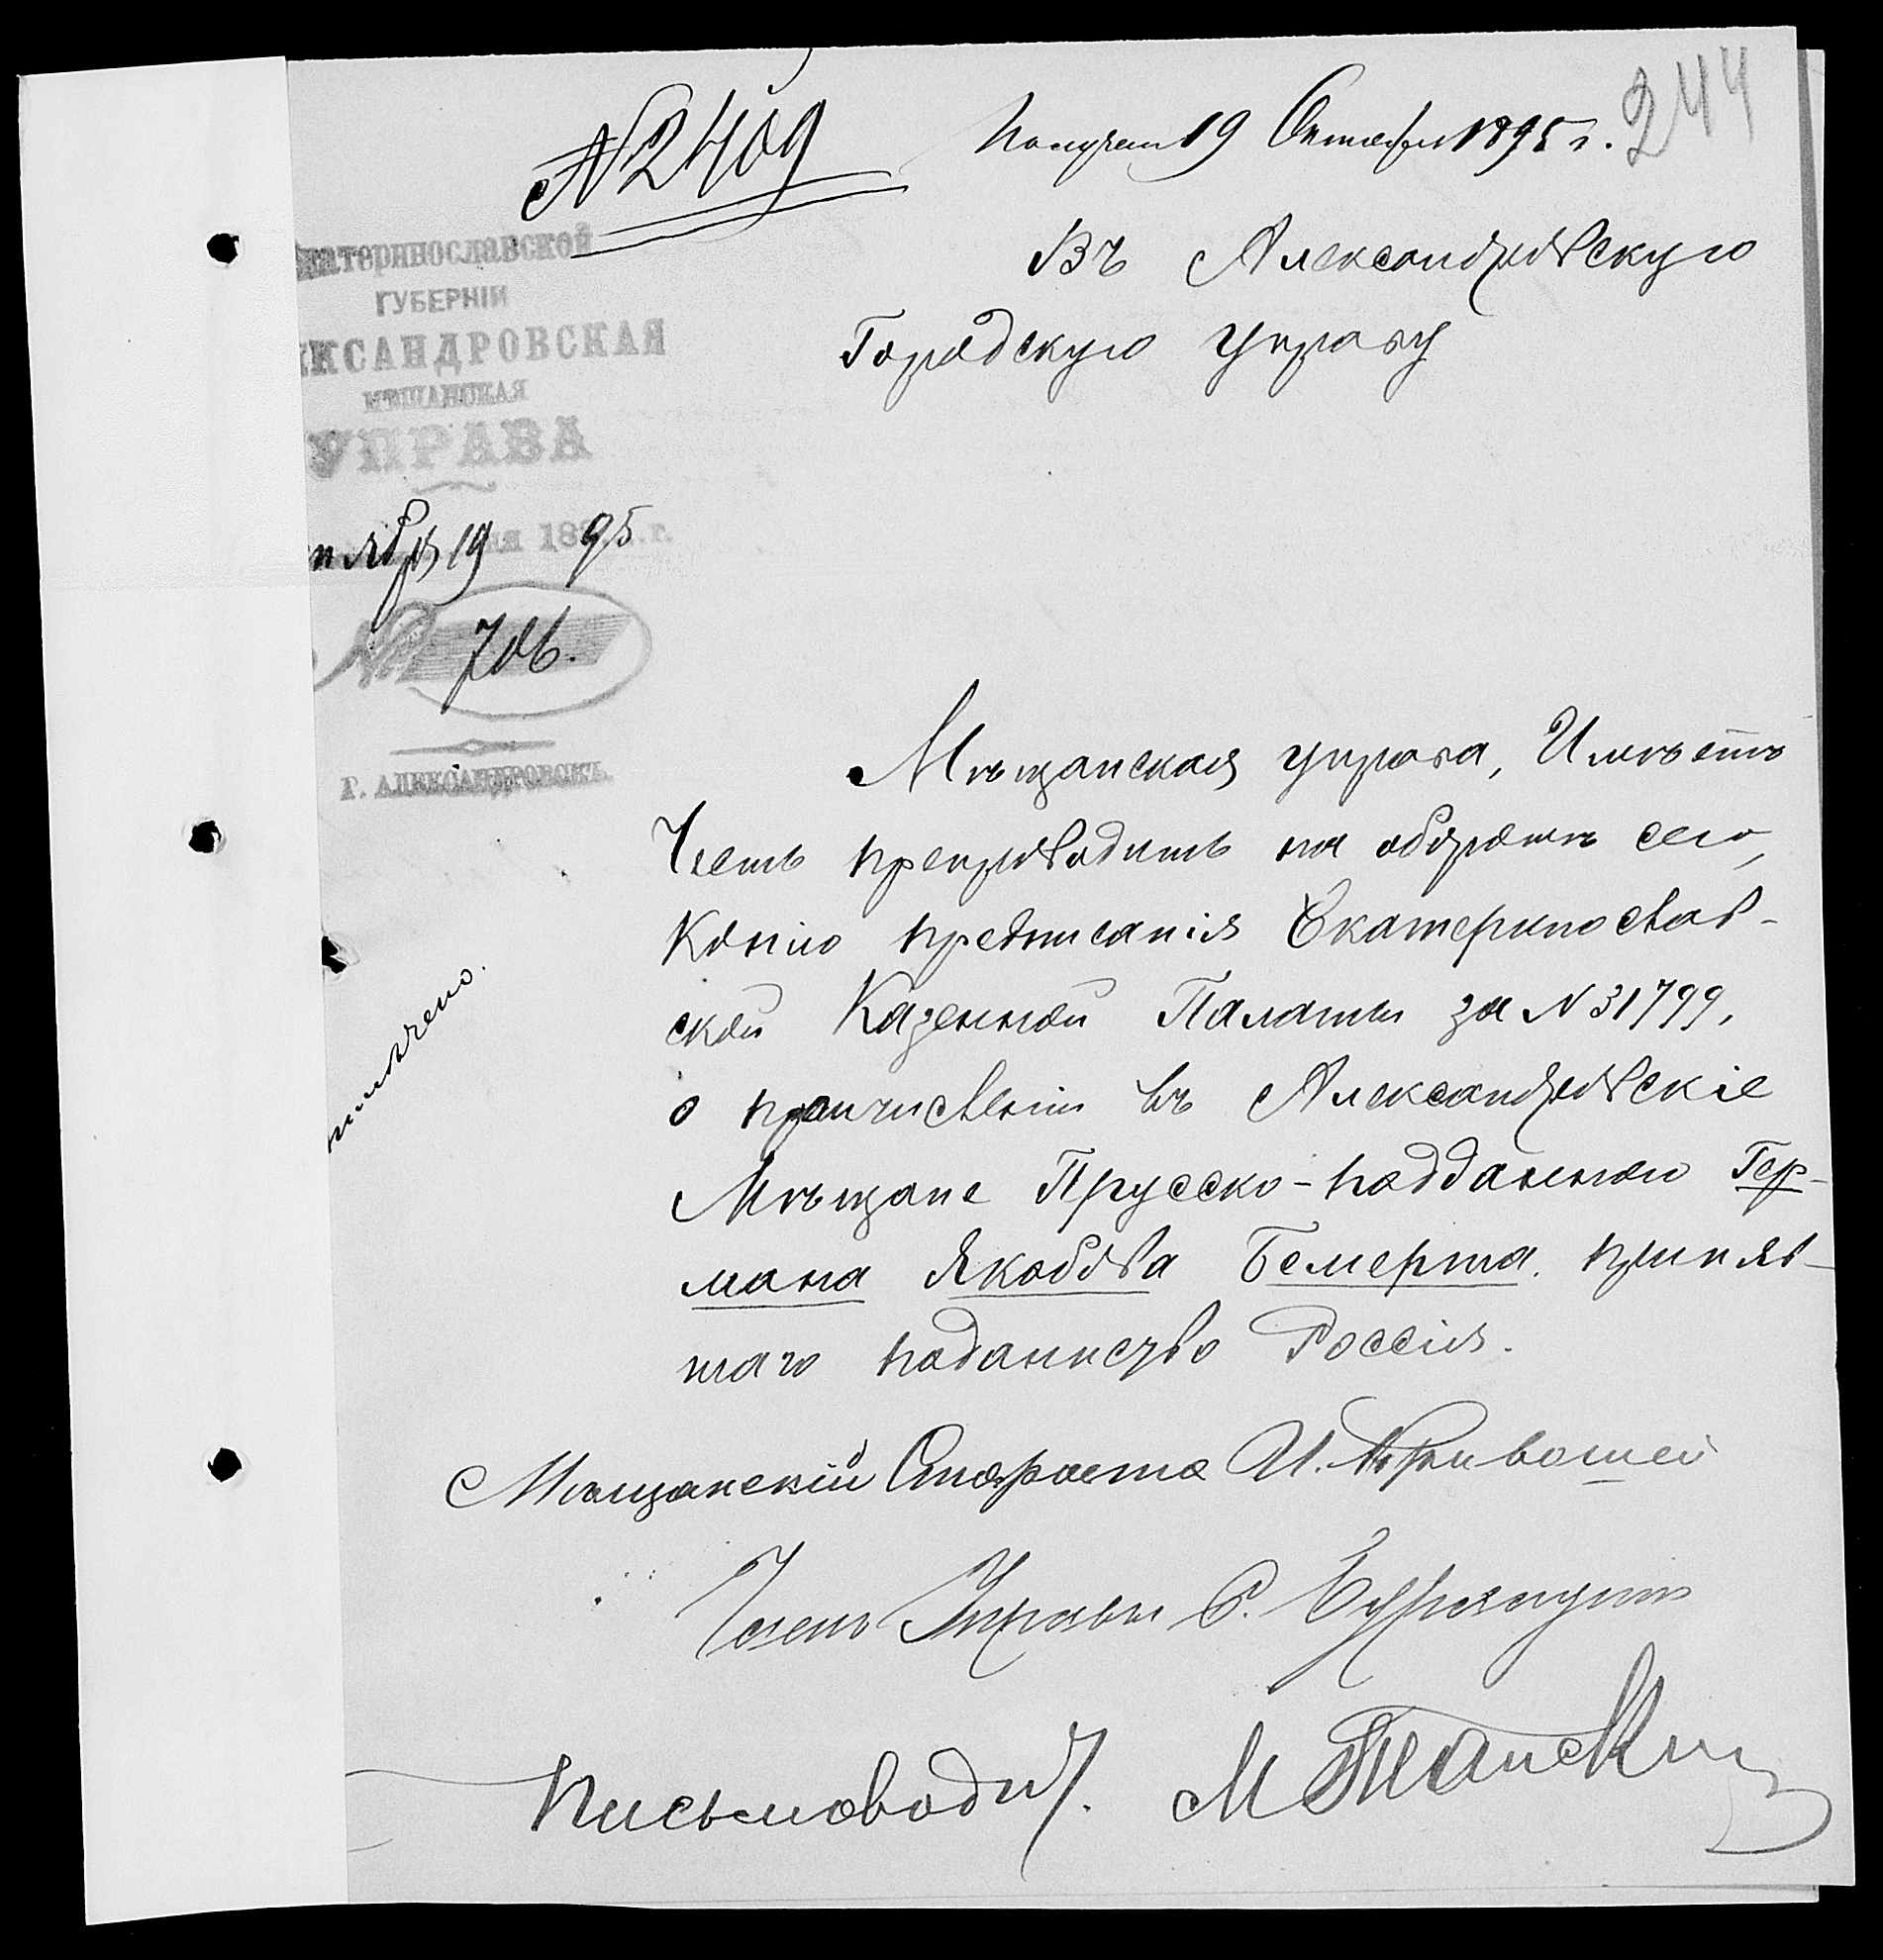 244
№ 2409
Получено 19 Октября 1895 г.
катеринославской
ГУБЕРНІИ
КСАНДРОВСКАЯ
МѢЩАНСКАЯ
УПРАВА
тября 19 дня 1895 г.
№ 706.
Г. АЛЕКСАНДРОВСКЪ.
Въ Александровскую
Городскую управу
Мѣщанская управа, Имѣетъ
Честь препроводить на оборотѣ сего,
Копію предписанія Екатеринослав-
ской Казенной Палаты за № 31799,
о причисленіи въ Александровскіе
Мѣщане Прусско-подданного Гер-
мана Якобова Бемерта. приняв-
шаго поданнство Россія.
Мѣщанскій Староста И. Кривошей
Членъ Управы С.
Письмоводит. М